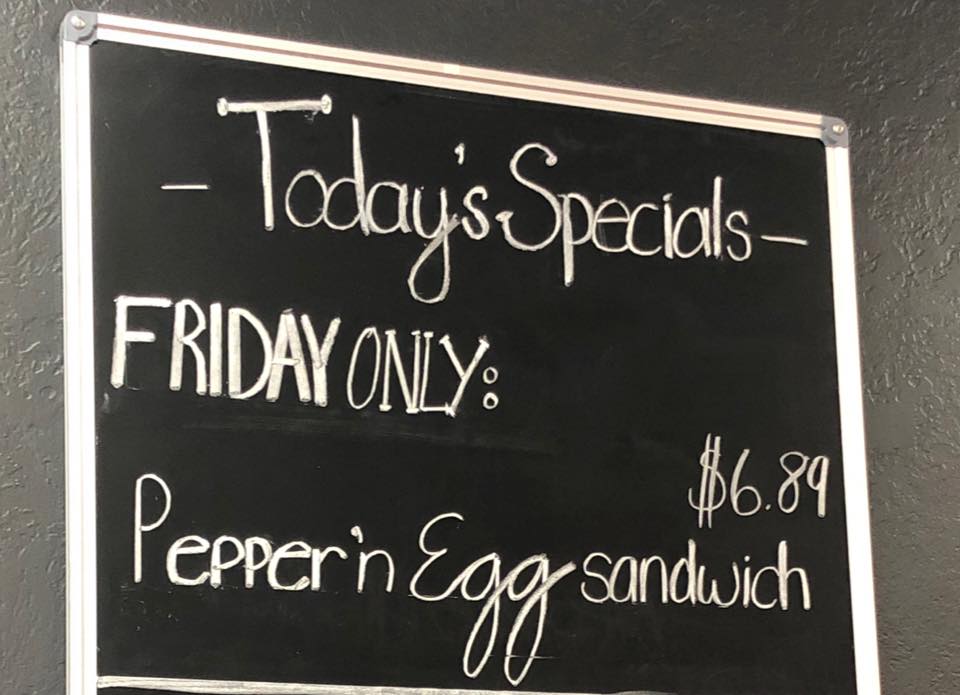 - Today's Specials -
FRIDAY ONLY:
$6.89
Pepper'n Egg sandwich